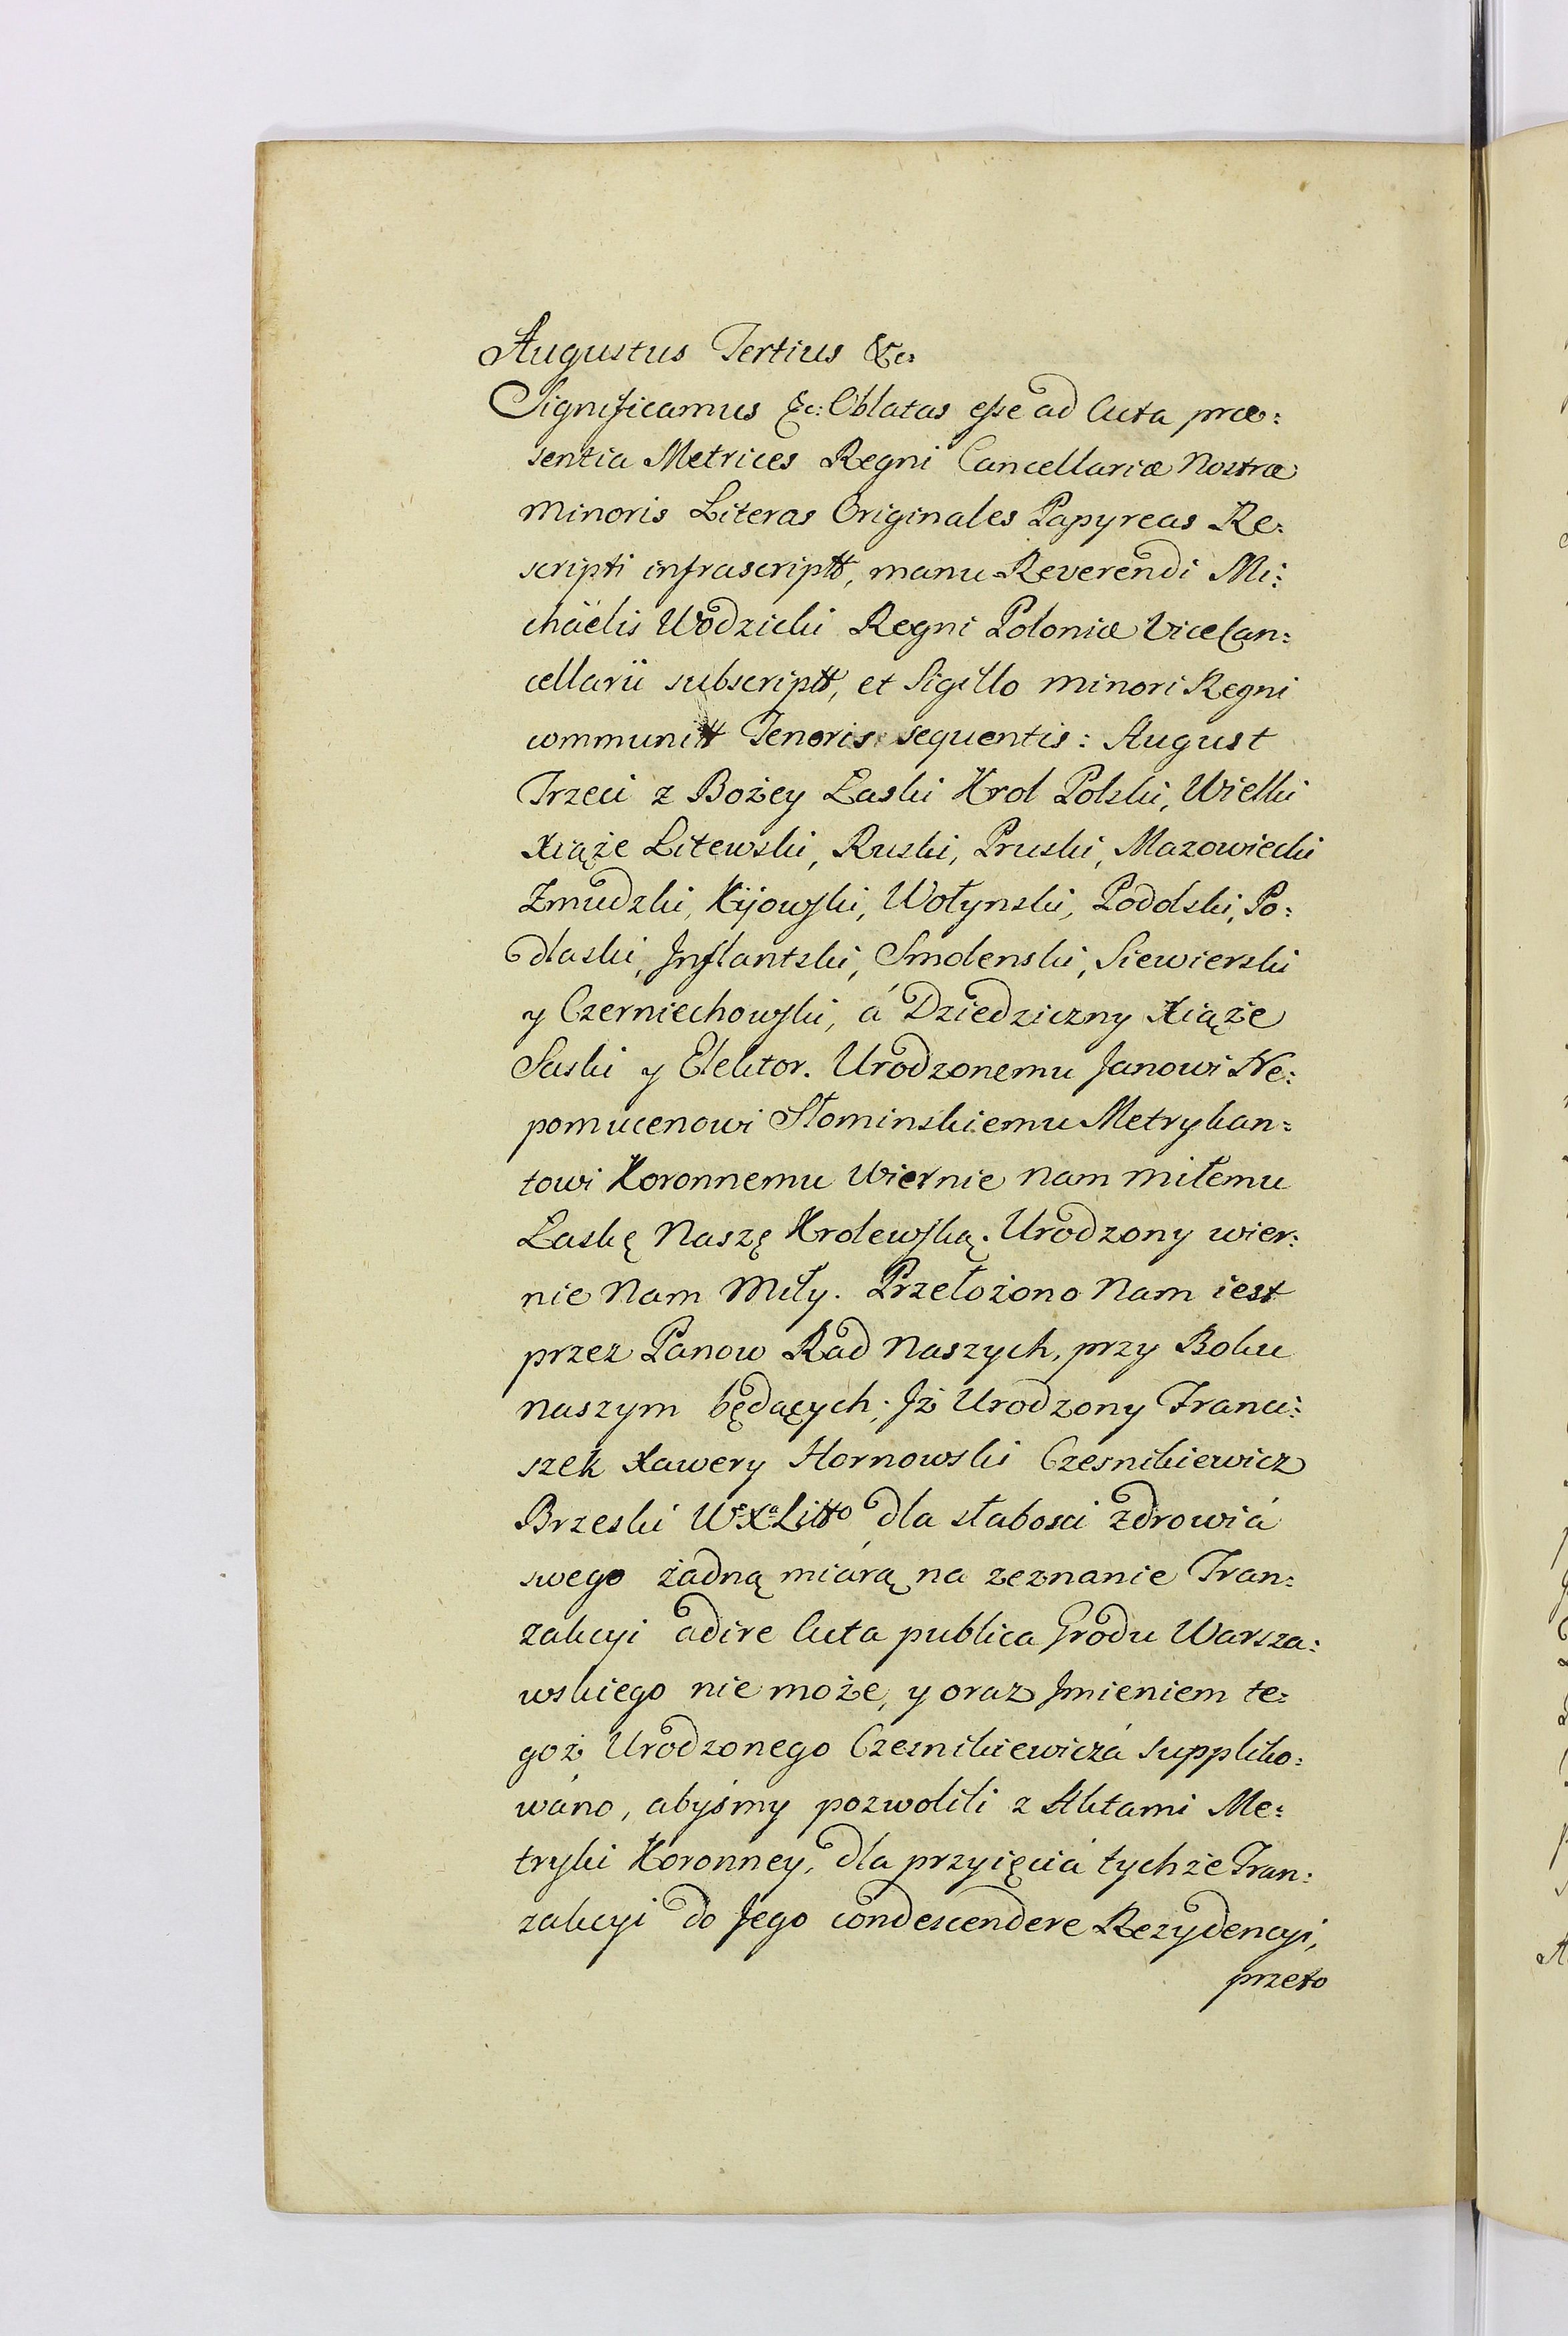 Augustus Tertius &c:
Significamus &c: Oblatas esse ad Acta præ:
sentia Metrices Regni Cancellariæ Nostræ
Minoris Literas Originales Papyreas Re:
scripti infrascriptt, manu Reverendi Mi:
chäelis Wodzicki Regni Poloniæ ViceCan:
cellarii subscriptt, et Sigillo minori Regni
communitt Tenoris sequentis: August
Trzeci z Bożey Łaski Krol Polski, Wielki
Xiąże Litewski, Ruski, Pruski, Mazowiecki
Zmudzki, Kijowski, Wołynski, Podolski, Po:
dlaski, Jnflantski, Smolenski, Siewierski
y Czerniechowski, á Dziedziczny Xiąże
Saski y Elektor. Urodzonemu Janowi Ne:
pomucenowi Słominskiemu Metrykan:
towi Koronnemu Wiernie Nam miłemu
Łaskę Naszę Krolewską. Urodzony wier:
nie Nam Miły. Przełożono Nam iest
przez Panow Rad Naszych, przy Boku
naszym będących; Jż Urodzony Franci:
szek Xawery Hornowski Czesnikiewicz
Brzeski Wº Xª Littº dla słabosci zdrowiá
swego żadną miárą na zeznanie Tran:
zakcyi adire Acta publica Grodu Warsza:
wskiego nie może, y oraz Jmieniem te:
goż Urodzonego Czesnikiewiczá suppliko:
wáno, abyśmy pozwolili z Aktami Me:
tryki Koronney, dla przyięciá tychże Tran:
zakcyi do Jego condescendere Rezydencyi,
przeto